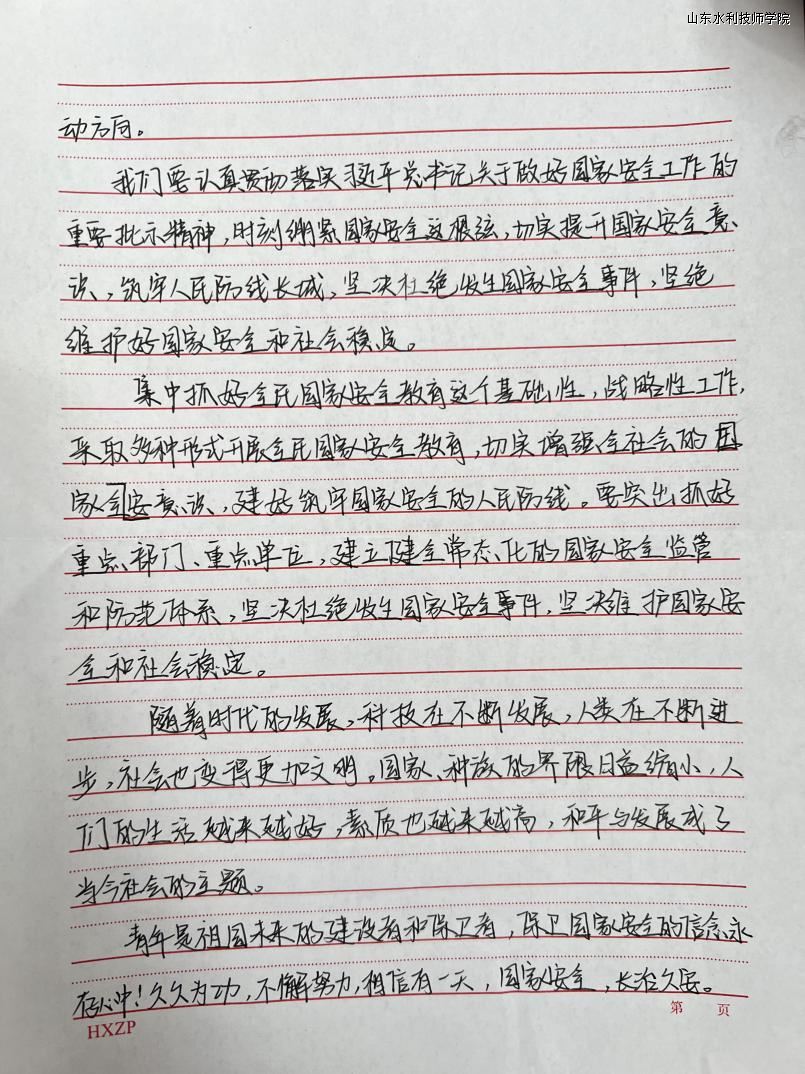 山东水利技师学院
动方向。
我们要认真贯彻落实习近平总书记关于做好国家安全工作的
重要批示精神，时刻绷紧国家安全这根弦，切实提升国家安全意
识，筑牢人民防线长城，坚决杜绝发生国家安全事件，坚绝
维护好国家安全和社会稳定。
集中抓好全民国家安全教育这个基础性，战略性工作，
采取多种形式开展全民国家安全教育，切实增强全社会的国
家全安意识，建好筑牢国家安全的人民防线。要突出抓好
重点部门、重点单位，建立健全常态化的国家安全监管
和防范体系，坚决杜绝发生国家安全事件，坚决维护国家安
全和社会稳定。
随着时代的发展，科技在不断发展，人类在不断进
步，社会也变得更加文明。国家、种族的界限日益缩小，人
们的生活越来越好，素质也越来越高，和平与发展成了
当今社会的主题。
青年是祖国未来的建设者和保卫者，保卫国家安全的信念永
存心中！久久为功，不懈努力，相信有一天，国家安全，长治久安。
第 页
HXZP